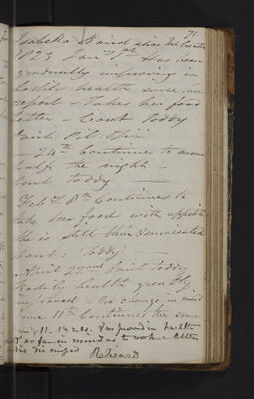 71
Isabella Baird alias
1823 Jany 1st Has been
gradually improving in
bodily health since
report - Takes her food
better - Cont Toddy
- 24th Continues to moan
half the night -
Cont toddy
Feby 8th Continues to
take her food with appetite
She is still thin & emaciated
Cont: Toddy
April 22nd Omit toddy
Bodily health greatly
improved - No change in mind
June 11th Continues the same
Improved in health
and so far in mind as to work
dismissed Relieved